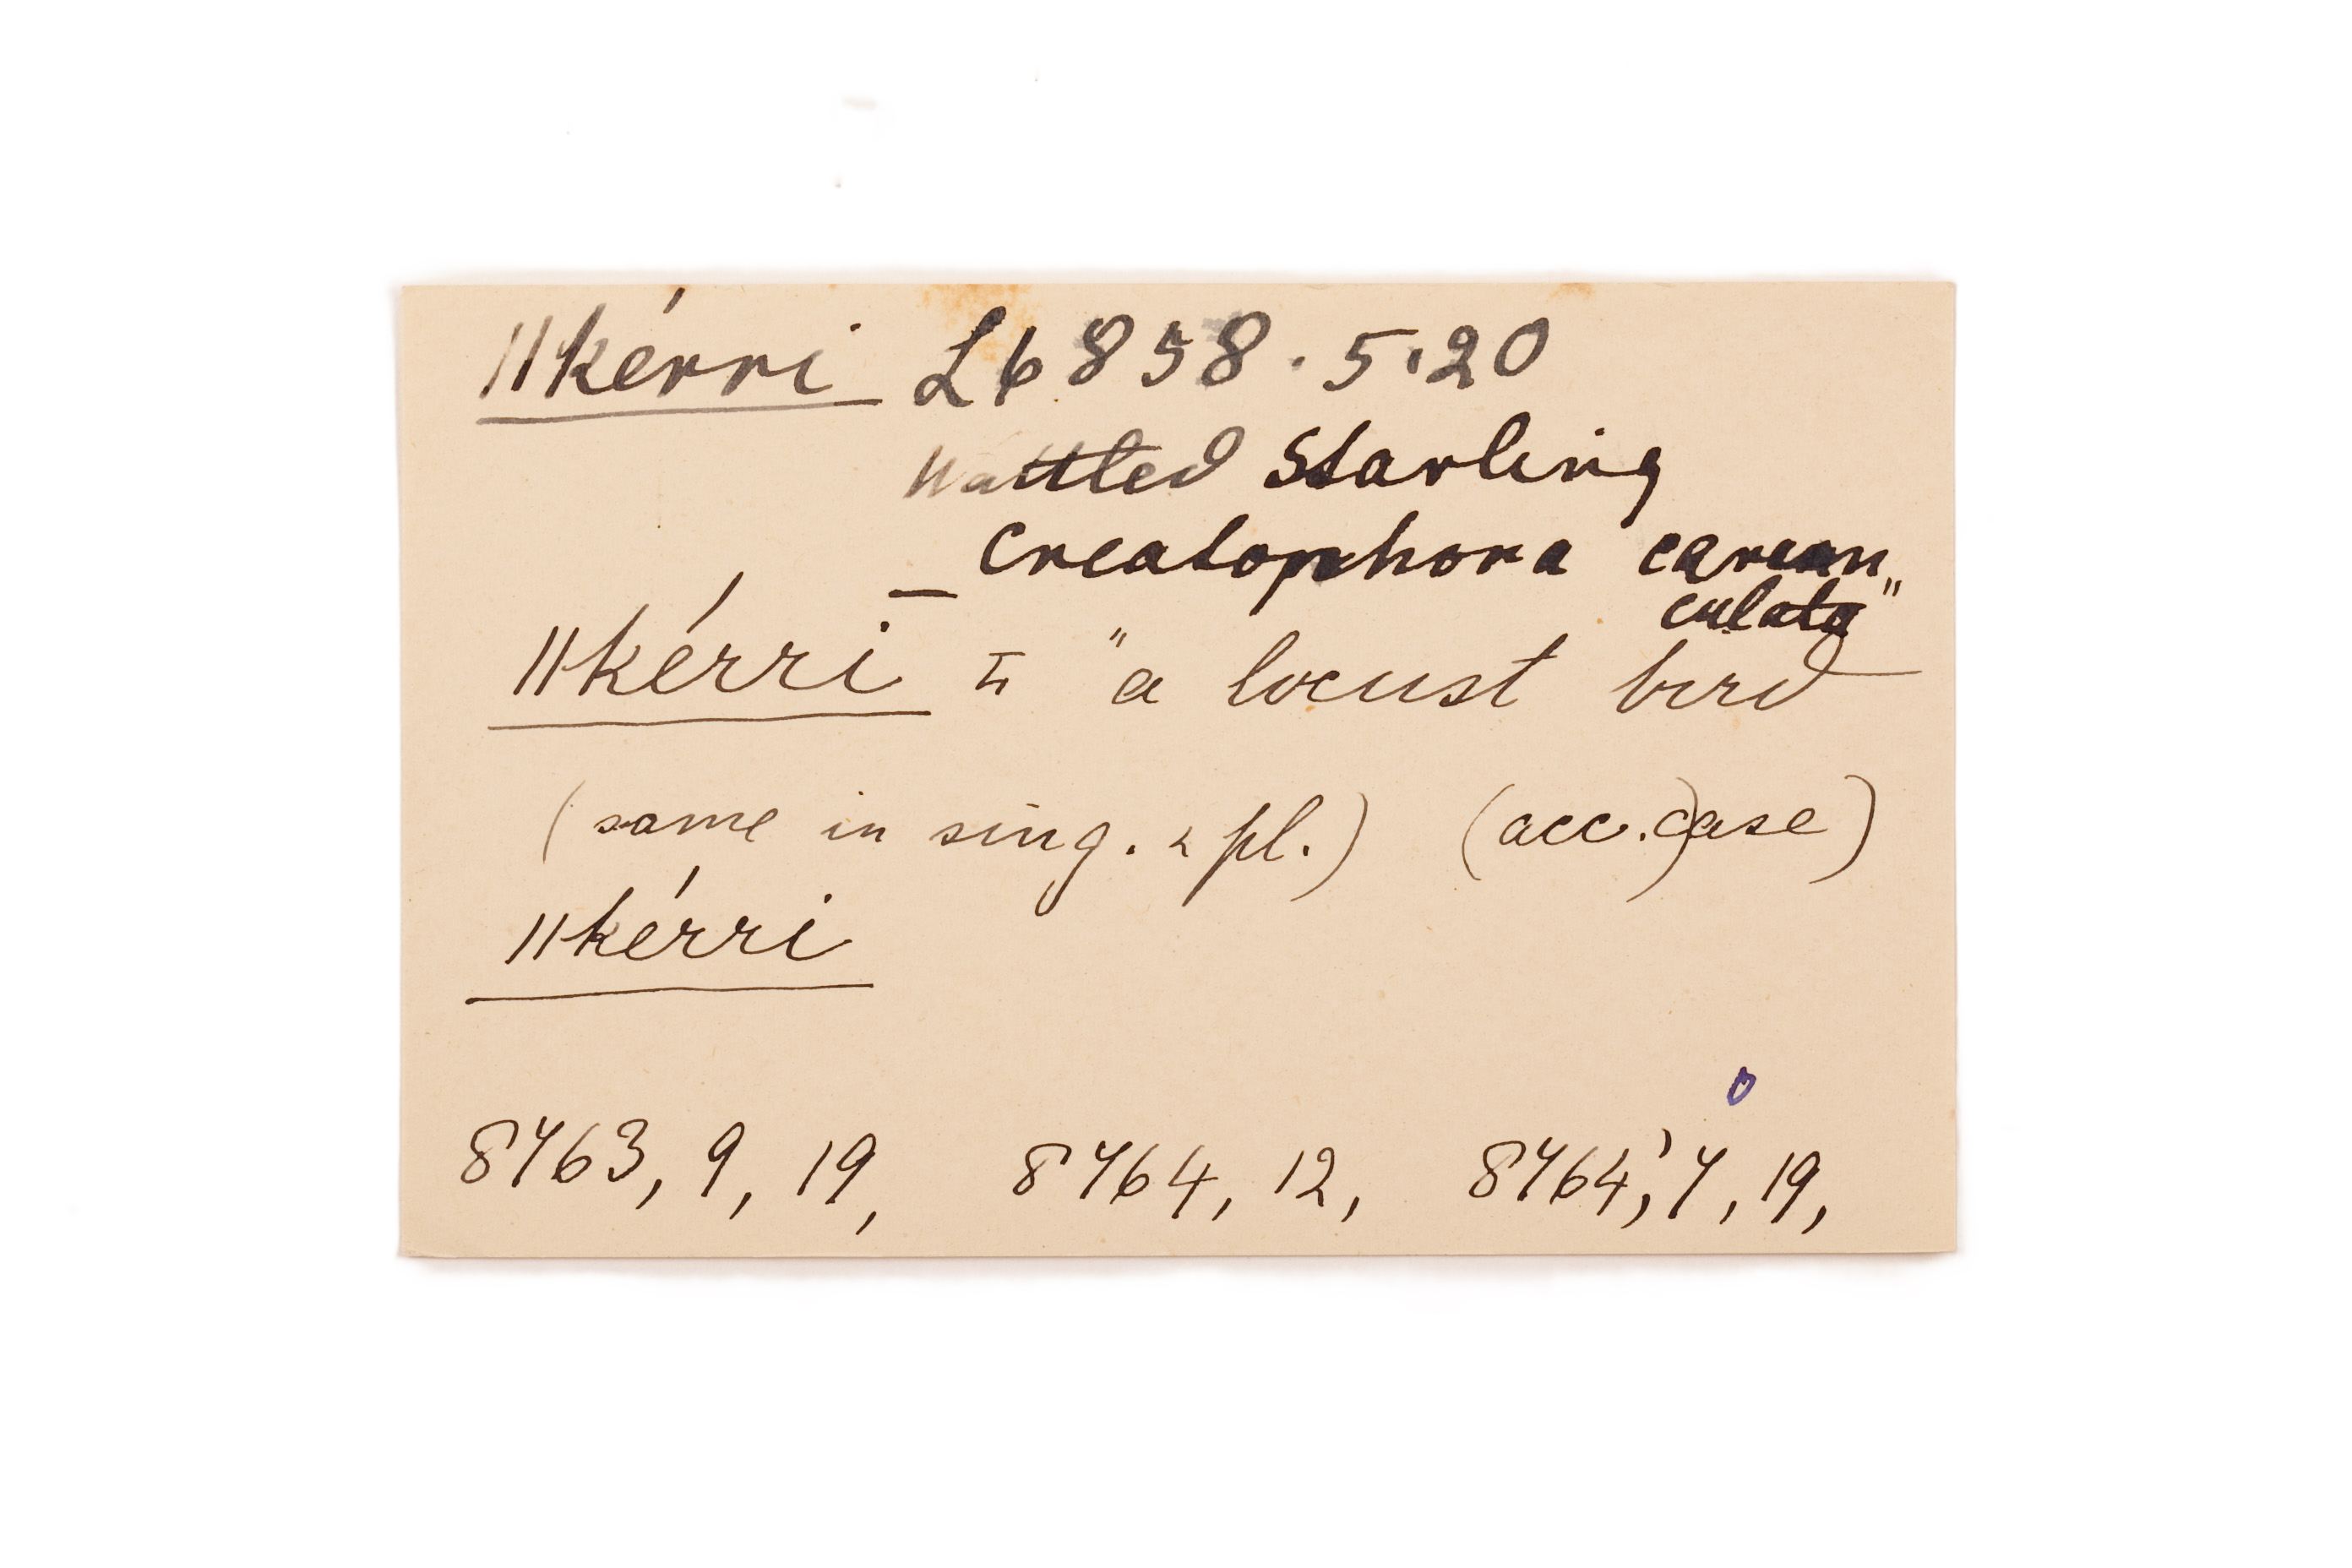 ǁkérri L6858.5.20
Wattled Starling
Creatophora carun
culata"
ǁkérri "a locust bird"
(same in sing. & pl.) (acc.) case)
ǁkérri
8763, 9, 19, 8764, 12, 8764, 7, 19,